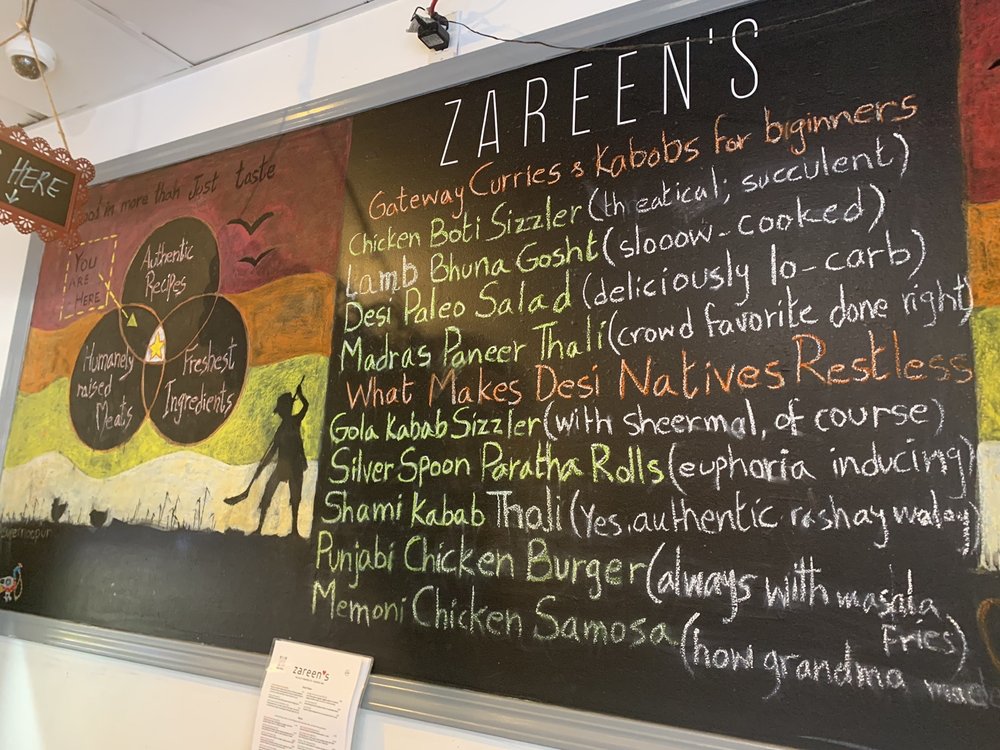 HERE
Food in more than Just taste
YOU
ARE
HERE
Authentic
Recipes
Humanely
raised
Meats
Freshest
Ingredients
ZAREEN'S
Gateway Curries & Kabobs for biginners
Chicken Boti Sizzler (threatical; succulent)
Lamb Bhuna Gosht (slooow-cooked)
Desi Paleo Salad (deliciously lo-carb)
Madras Paneer Thali (crowd favorite done right)
What Makes Desi Natives Restless
Gola Kabab Sizzler (with sheermal, of course)
Silver Spoon Paratha Rolls (euphoria inducing)
Shami Kabab Thali (Yes, authentic rashay walay)
Punjabi Chicken Burger (always with masala
Fries)
Memoni Chicken Samosa (how grandma made
zareen's